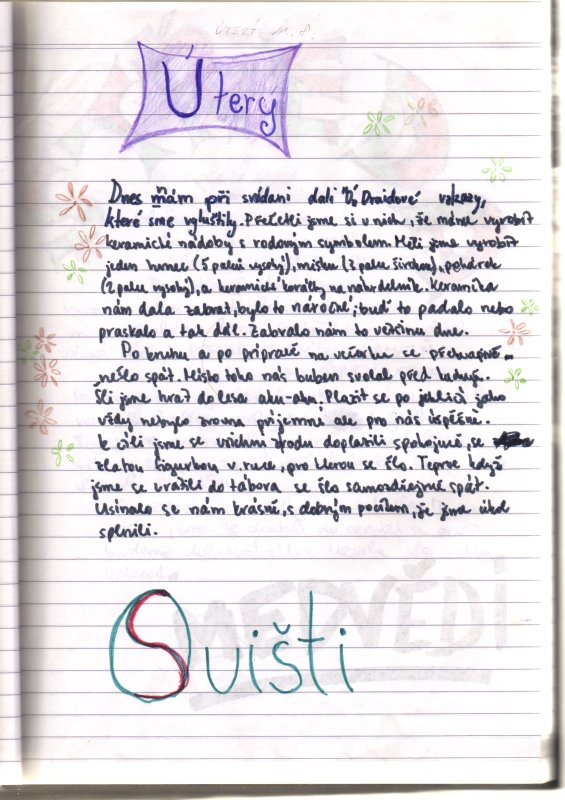 Úterý 11. 8.
Úterý
Dnes nám při snídani dali Draidové vzkazy,
které sme vyluštily. Přečetli jsme si v nich, že máme vyrobit
keramické nádoby s rodovým symbolem. Měli jsme vyrobit
jeden hrnec (5 palců vysoký), misku (3 palce širokou), pohárek
(2 palce vysoký), a keramické korálky na náhrdelník. Keramika
nám dala zabrat, bylo to náročné; buď to padalo nebo
praskalo a tak dál. Zabralo nám to většinu dne.
Po kruhu a po přípravě na večerku se překvapivě
nešlo spát. Místo toho nás buben svolal před
Šli jsme hrát do lesa aku-aku. Plazit se po jehličí jako
vždy nebylo zrovna příjemné ale pro nás úspěšné.
K cíli jsme se všichni doplazili spokojeně, se
zlatou figurkou v ruce, pro kterou se šlo. Teprve když
jsme se vrátili do tábora se šlo samozdřejmě spát.
Usínalo se nám krásně, s dobrým pocitem, že jsme úkol
splnili.
MEDVĚDI
Svišti